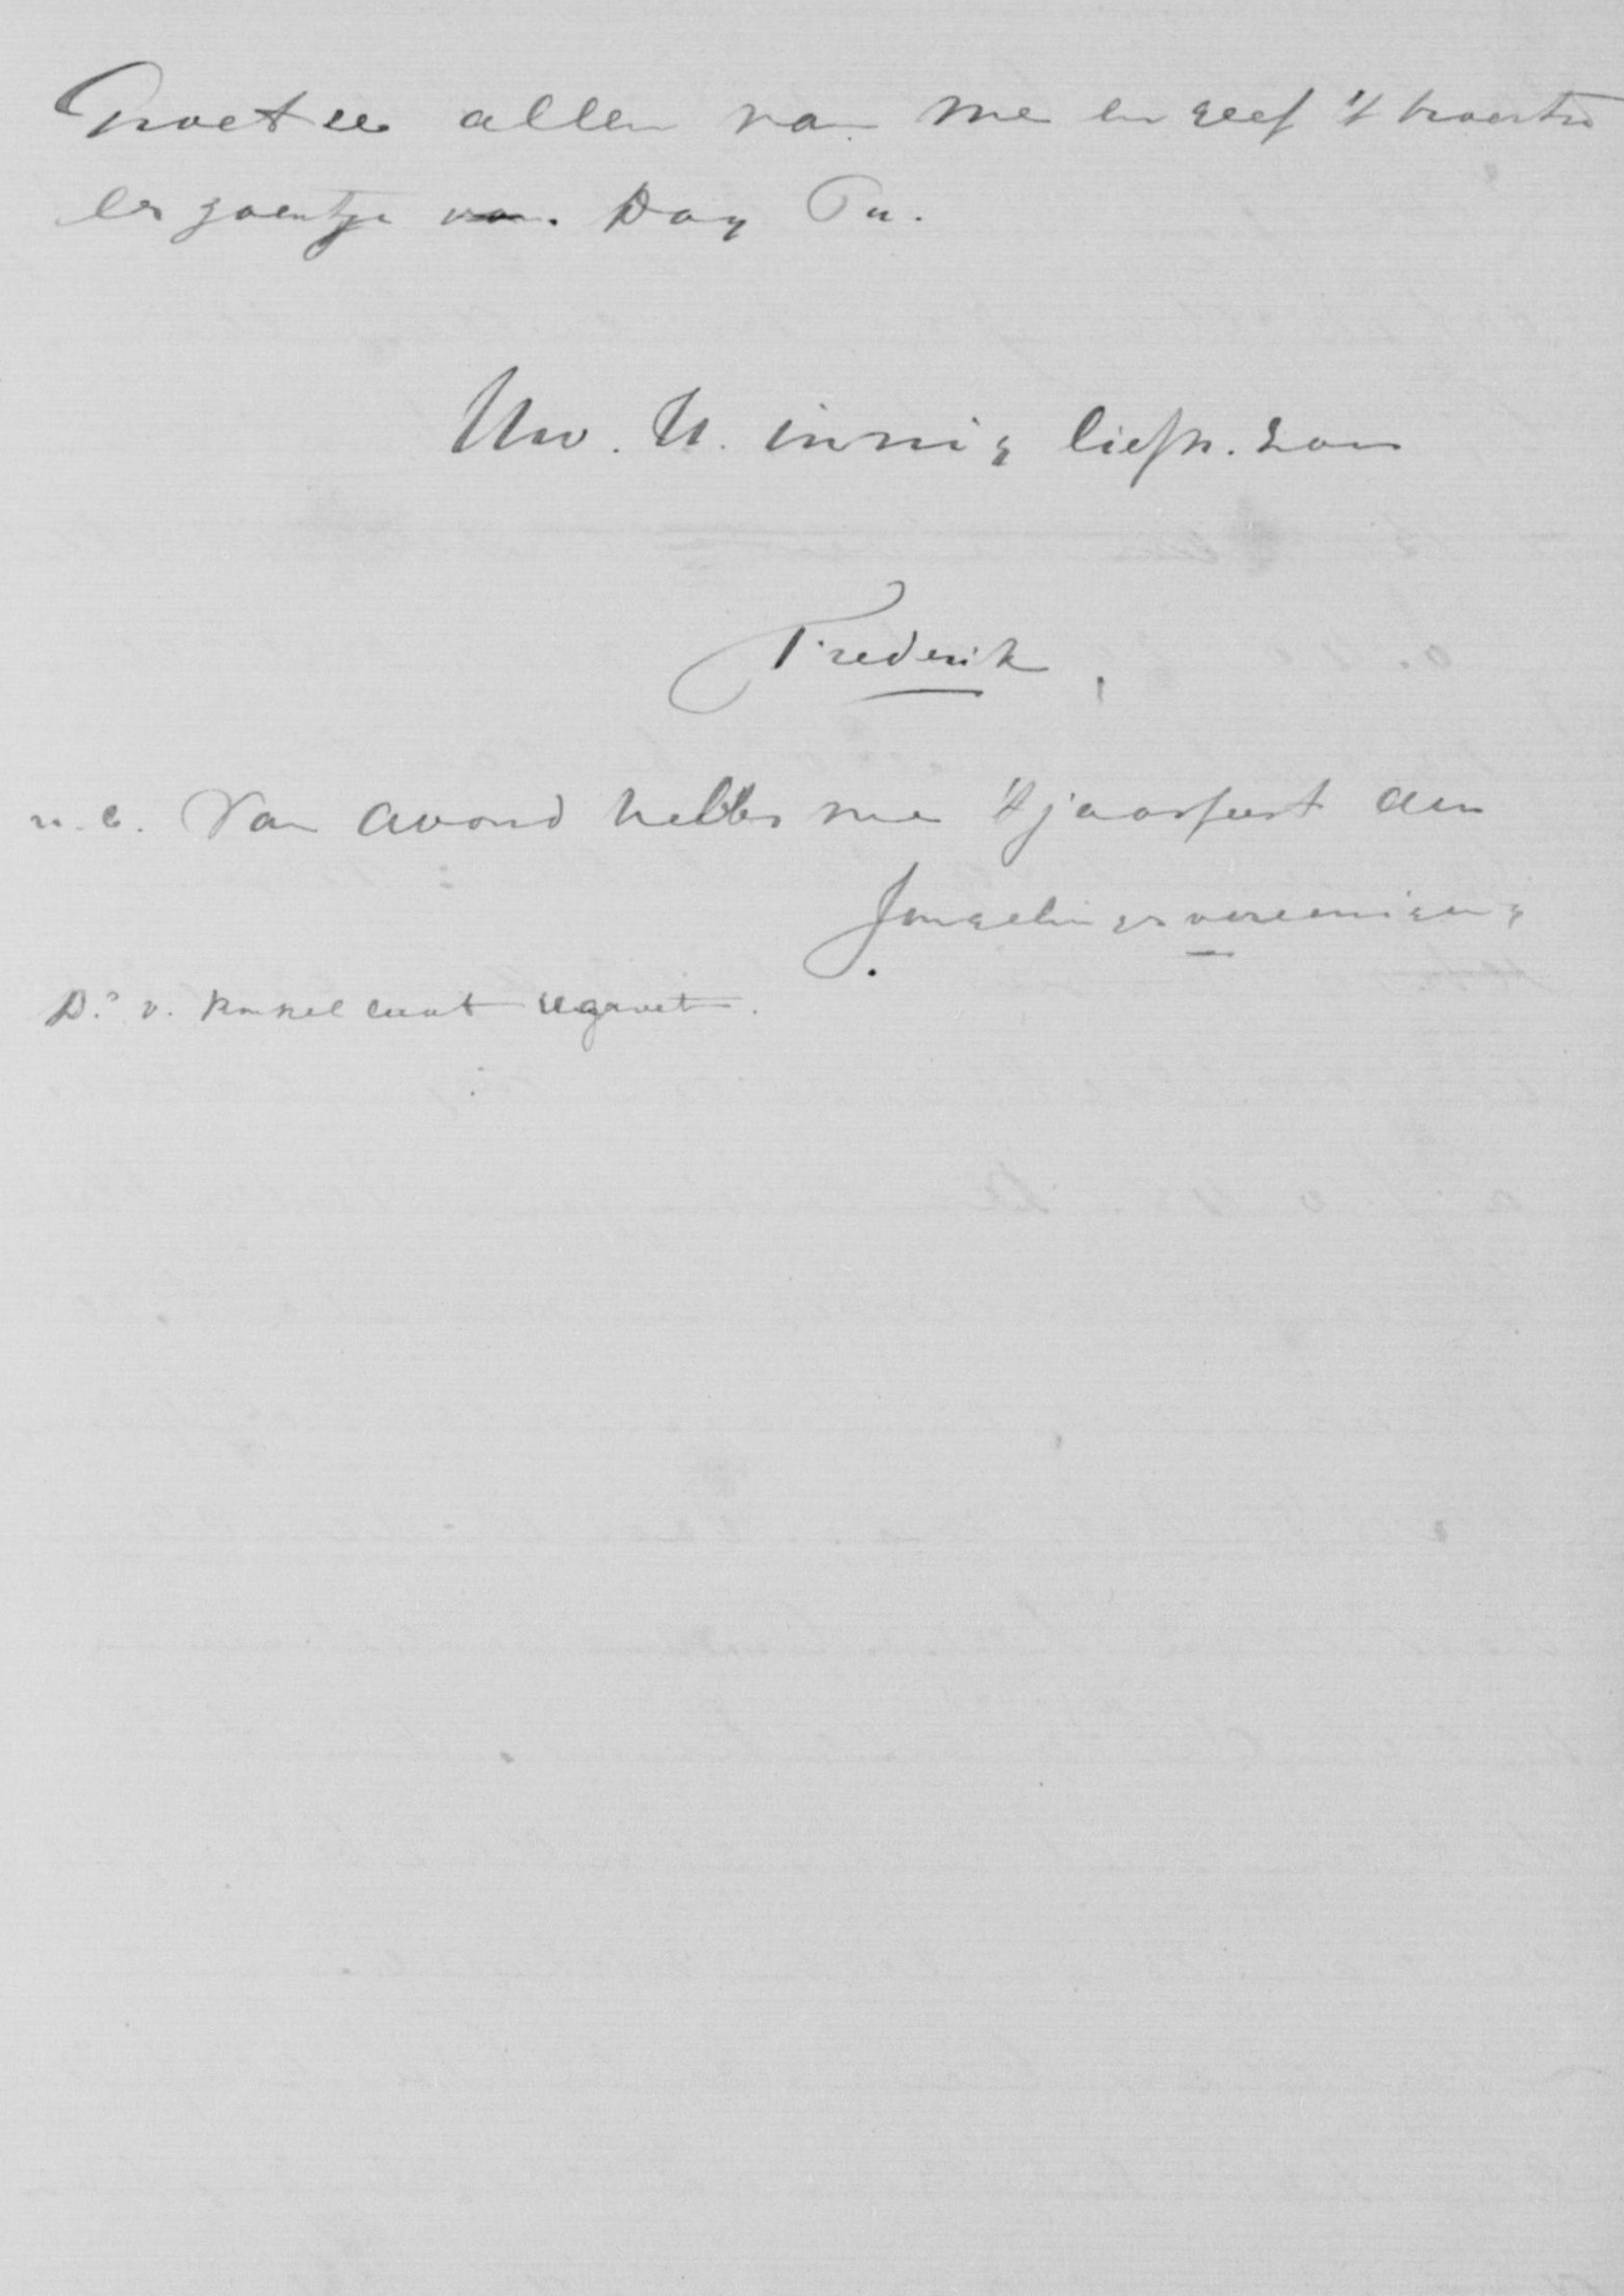 Groet u allen van me en geef 't broertje
een zoentje van. Dag Pa.
Uw. U. innig liefh. zoon
Frederik
n.b. Van avond hebben we 't jaarfeest der
Jongelingsvereeniging
Ds v. laat u groet.